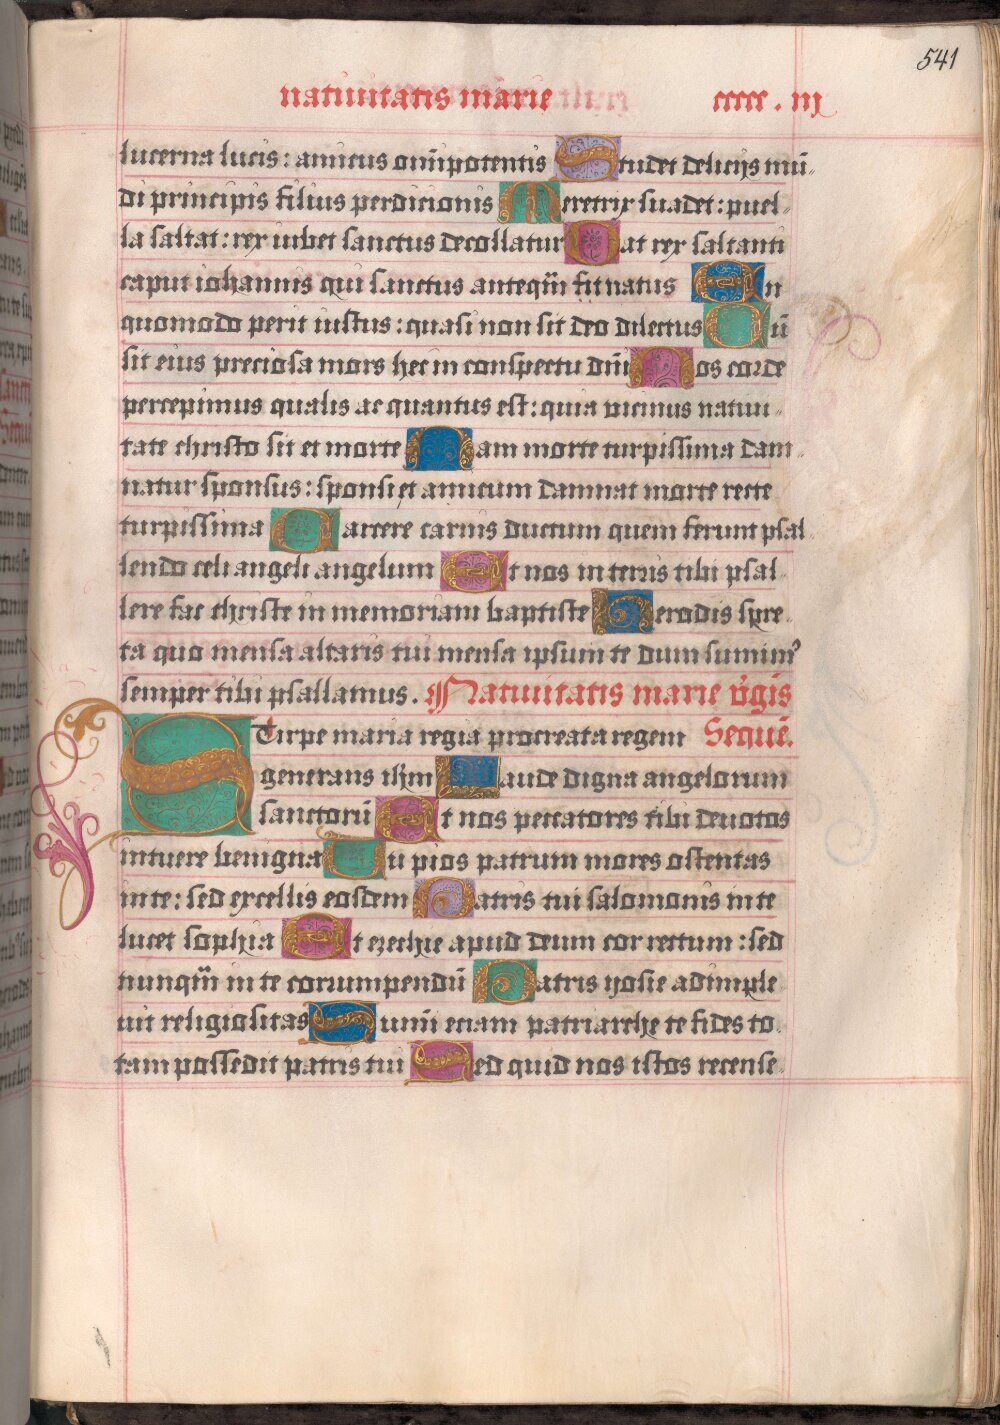 541
natiuitatis marie ccccc . iij
lucerna lucis : amicus om̄ipotentis Studet delicijs mū-
di principis filius perdicionis Meretrix suadet : puel-
la saltat : rex iubet sanctus decollatur Dat rex saltanti
caput iohannis qui sanctus anteqū̄ fit natus En
quomodo perit iustus : quasi non sit deo dilectus Cū
sit eius preciosa mors hec in conspectu dn̄i Nos corde
percepimus qualis ac quantus est : quia vicinus natiui-
tate christo sit et morte Nam morte turpissima dam-
natur sponsus : sponsi et amicum damnat morte recte
turpissima Carcere carnis ductum quem ferunt psal-
lendo celi angeli angelum Et nos in terris tibi psal-
lere fac christe in memoriam baptiste Herodis spre-
ta quo mensa altaris tui mensa ipsum te dum sumim⁹
semper tibi psallamus . Natiuitatis marie v̄gis
Stirpe maria regia procreata regem Sequē.
generans ih̄m Laude digna angelorum
sanctorū Et nos peccatores tibi deuotos
intuere benigna Tu pios patrum mores ostentas
in te : sed excellis eosdem Patris tui salomonis in te
lucet sophia Et ezechie apud deum cor rectum : sed
nunqū̄ in te corrumpendū Patris yosie adimple-
uit religiositas Summi etiam patriarche te fides to-
tam possedit patris tui Sed quid nos istos recense-